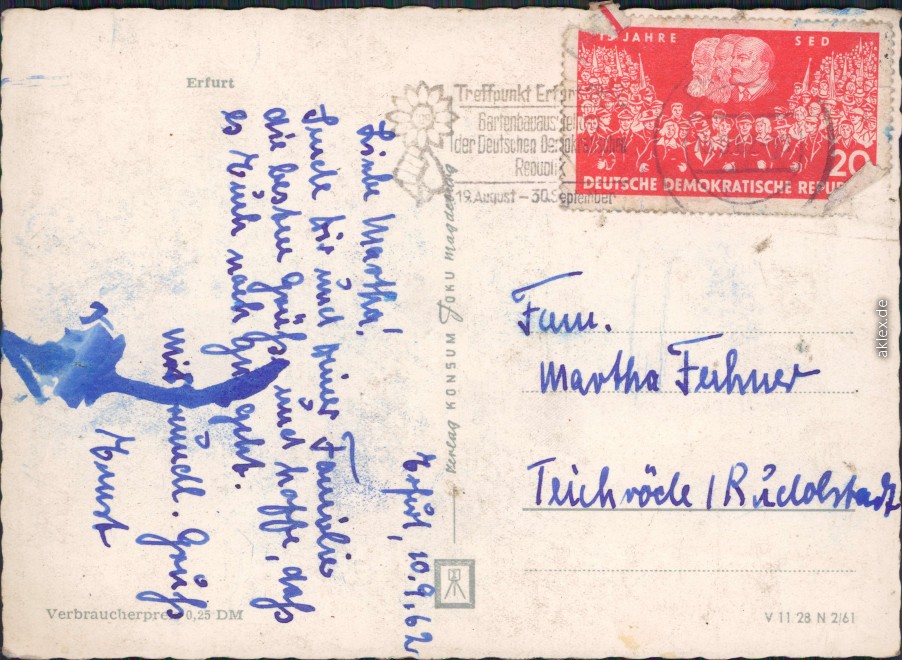 Erfurt
Treffpunkt Erfurt
Gartenbauausstellung
der Deutschen Demokratischen
Republik
19. August – 30. September
15 JAHRE SED
20
DEUTSCHE DEMOKRATISCHE REPU
Erfurt, 10.9.62
Liebe Martha!
Sende dir und deiner Familie
die besten Grüße und hoffe, daß
es Euch noch gut geht.
Mit freundl. Gruß
Ernst
Verlag KONSUM FOKU Magdeburg
Fam.
Martha Fechner
Teichröda / Rudolstadt
Verbraucherpreis 0,25 DM
V 11 28 N 2/61
aklex.de